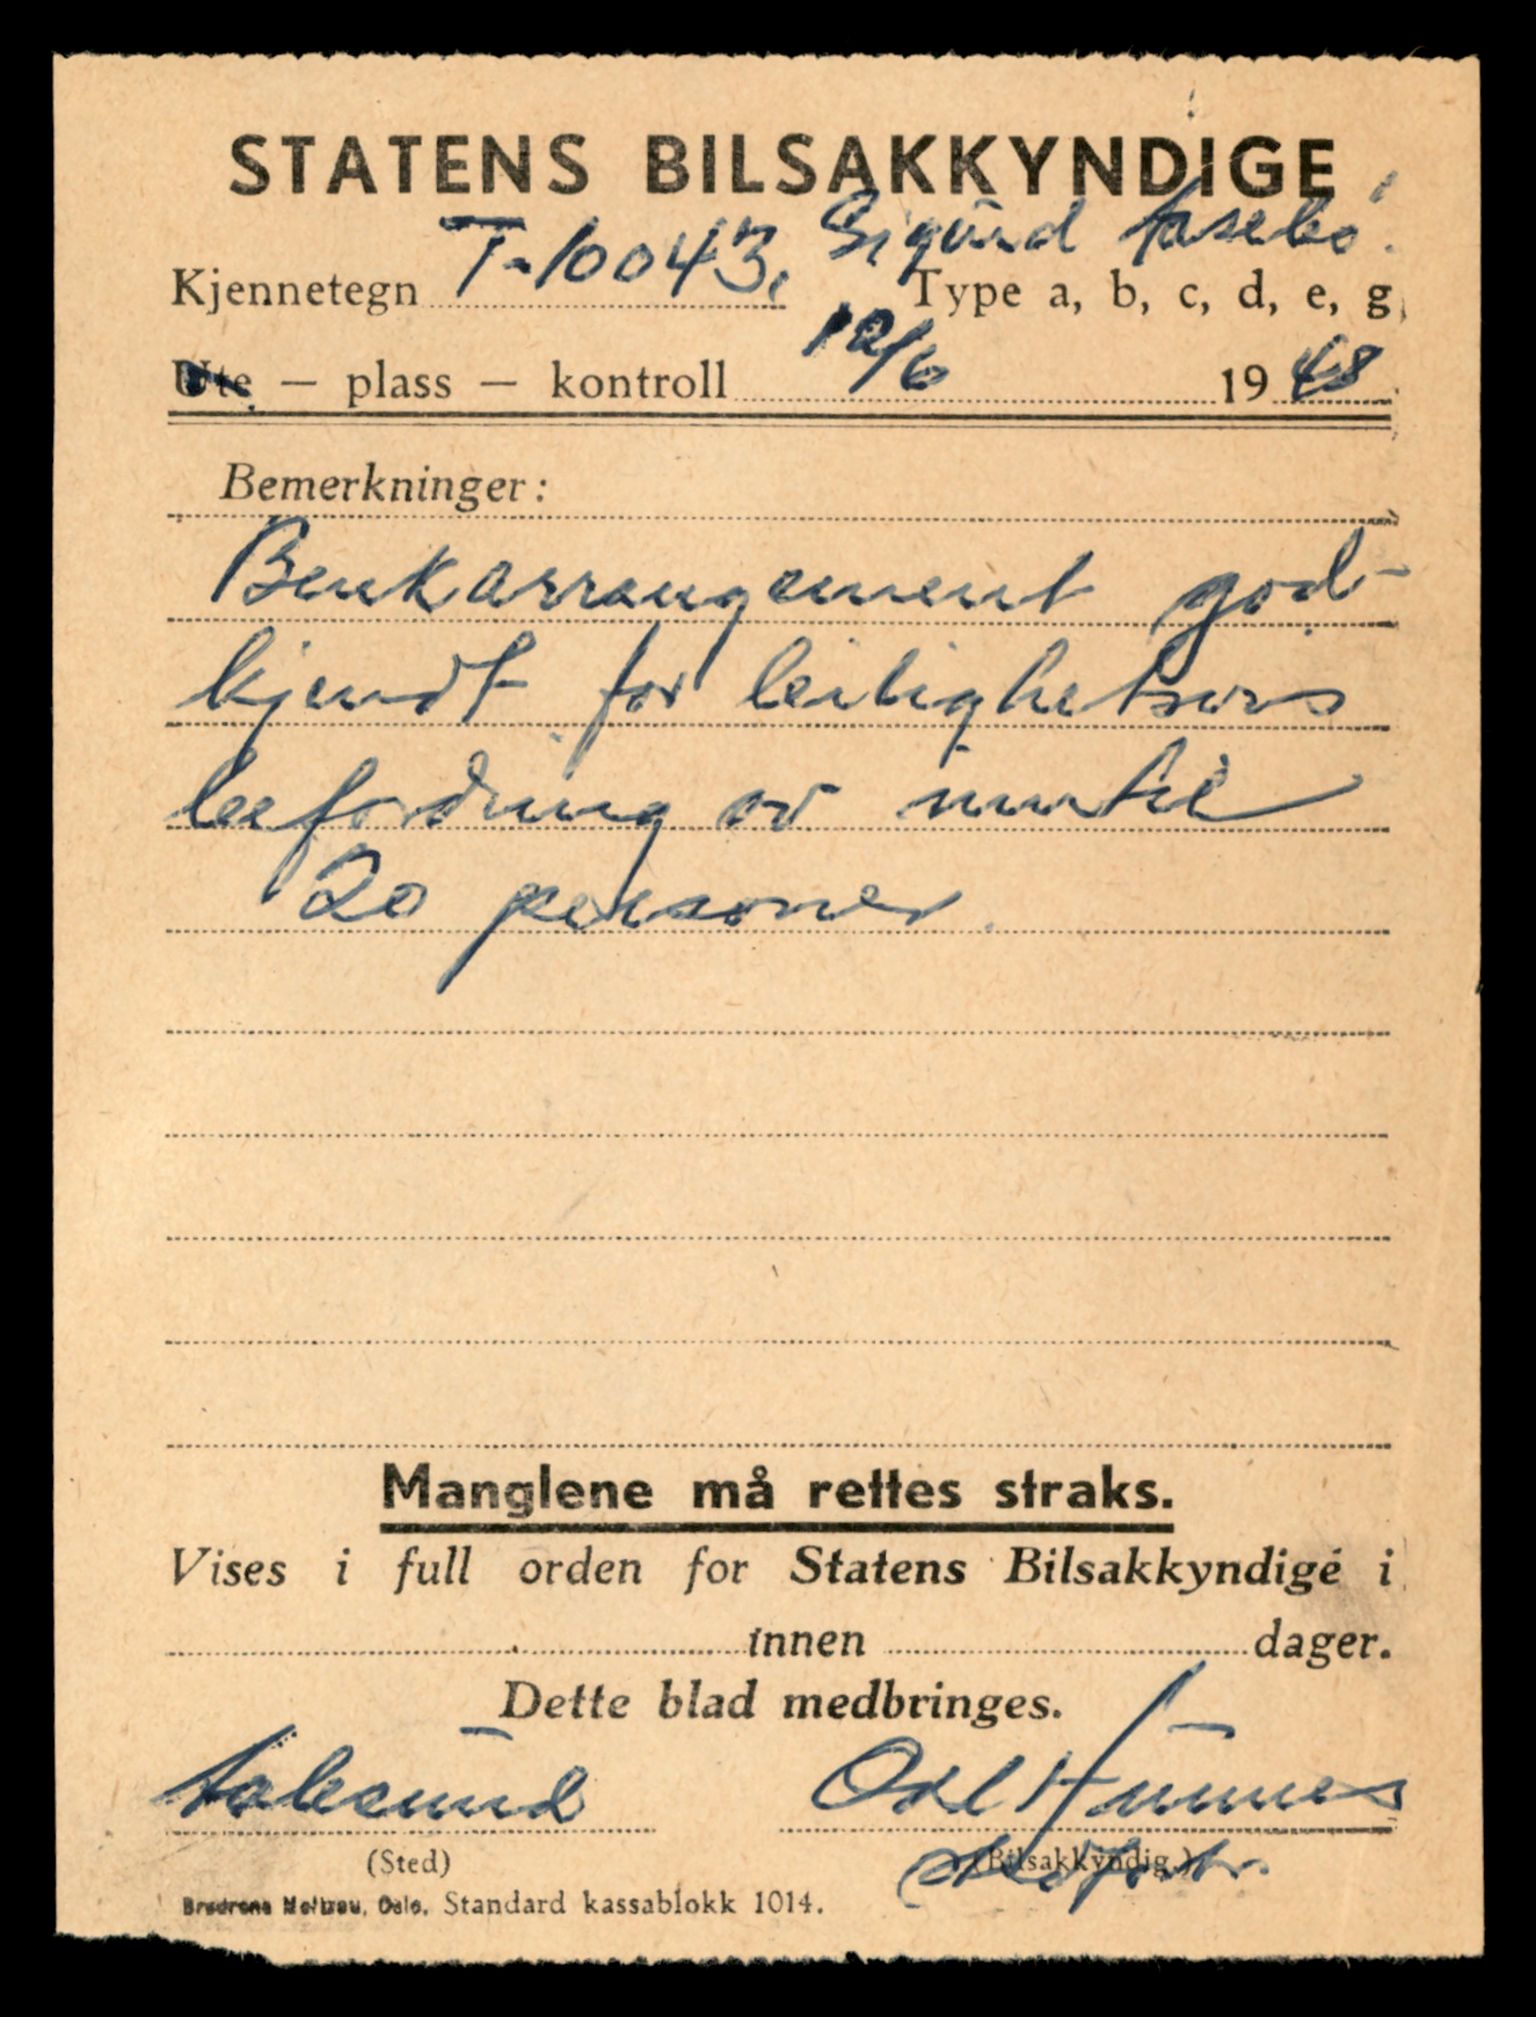 STATENS BILSAKKYNDIGE
Sigurd Aasebø.
Kjennetegn T-10043. Type a, b, c, d, e, g
Ute — plass — kontroll 12/6 1948
Bemerkninger:
Benkarrangement god-
kjendt for leilighetsvis
befordring av inntil
20 personer.
Manglene må rettes straks.
Vises i full orden for Statens Bilsakkyndige i
innen dager.
Dette blad medbringes.
Aalesund
(Sted) (Bilsakkyndig.)
Brødrene Meltzau, Oslo. Standard kassablokk 1014.